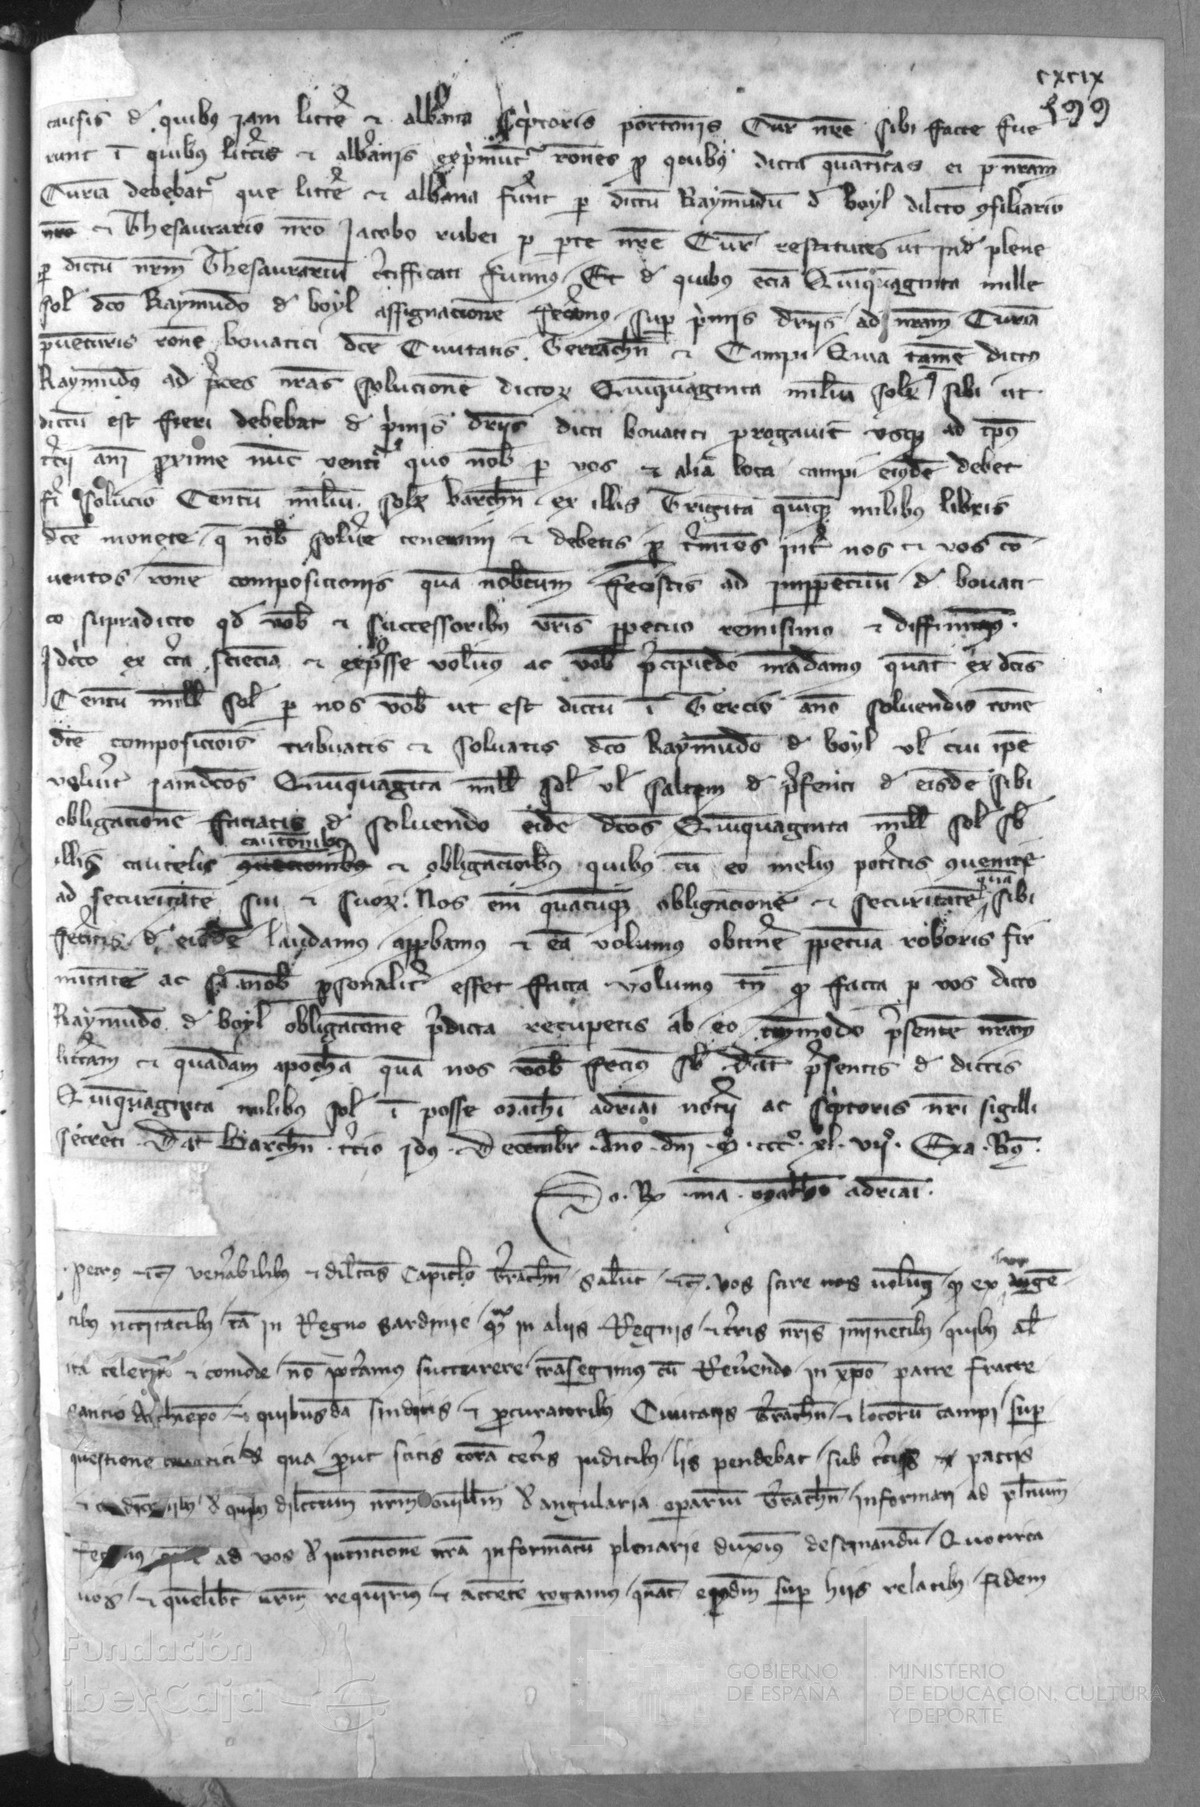 cxcix
199
causis d quibus jam littere et albarana scriptoris portionis Curie nostre sibi facte fue
runt in quibus litteris et albaranis exprimuntur rationes pro quibus dicta quantitas ei per nostram
Curiam debebatur que littere et albarana fuerunt per dictum Raymundum de Boyl dilecto consiliario
nostro et Thesaurario nostro Jacobo rubei pro parte nostre Curie restitute ut inde plene
per dictum nostrum Thesaurarium certifficati fuimus Et de quibus eciam Quinquaginta mille
sol dicto Raymundo de boyl assignacionem fecimus super primis denariis ad nostram Curiam
proventuris ratione bovatici dicte Civitatis Terrachone et Campi Quia tamen dictus
Raymundus ad preces nostras solucionem dictorum Quinquaginta milium solidorum sibi ut
dictum est fieri debebat de primis denariis dicti bovatici prorogavit usque ad tempus
tercii anni proxime nunc venturi quo nobis per vos et alia loca campi eiusdem debet
fieri solucio Centum milium solidorum barchinone ex illis Triginta quinque milibus libris
dicte monete que nobis solvere tenemini et debetis per terminos inter nos et vos con
ventos ratione composicionis quam nobiscum fecistis ad imperpetuum de bovati
co supradicto quod vobis et successoribus vestris perpetuo remisimus et diffinimus
Idcirco ex certa sciencia et expresse volumus ac vobis precipiendo mandamus quatenus ex dictis
Centum mille sol per nos vobis ut est dictum in Tercio anno solvendis ratione
dicte composicionis tribuatis et solvatis dicto Raymundo de boyl vel cui ipse
voluerit jamdictos Quinquaginta mille sol vel saltem de presenti de eisdem sibi
obligacionem faciatis de solvendo eidem dictos Quinquaginta mille sol sub
caucionibus
illis cautelis et obligacionibus quibus cum eo melius poteritis convenire
ad securitatem sui et suorum Nos enim quamcumque obligacionem et securitatem quam sibi
feceritis de eisdem laudamus approbamus et eam volumus obtinere perpetuam roboris fir
mitatem ac si a nobis personaliter esset facta volumus tamen quod facta per vos dicto
Raymundo de boyl obligacione predicta recuperetis ab eo presentem nostram
litteram et quandam apocham quam nos vobis fecimus sub dat presentis de dictis
Quinquaginta milibus sol in posse mathei adriani notarii ac scriptoris nostri sigilli
secreti Dat Barchinone tercio Idus Decembr Anno dni Mo CCCo xl viio Exa Ro
Do Rex man matheo adriani
Petrus etc venerabilibus et dilectis Capitulo Terrachone Salutem etc vos scire nos volumus quod ex urgen
tibus necessitatibus tam in Regno Sardinie quam in aliis Regnis et terris nostris iminentibus quibus
ita celeriter et comode non poteramus succurrere transegimus cum Reverendo in xpo patre fratre
Sancio Archiepo et quibusdam sindicis et procuratoribus Civitatis Terrachone et locorum campi super
questione bovatici de qua prout scitis coram certis judicibus lis pendebat sub certis pactis
et condicionibus de quibus dilectum nostrum Guillm d angularia operarium Terrachone informari ad plenum
fecimus ad vos de intencione nostra informatum plenarie duximus destinandum Quocirca
vos et quemlibet vestrum requirimus et attente rogamus quatenus eiusdem super hiis relatibus fidem
Fundación
iberCaja
GOBIERNO
DE ESPAÑA
MINISTERIO
DE EDUCACIÓN, CULTURA
Y DEPORTE